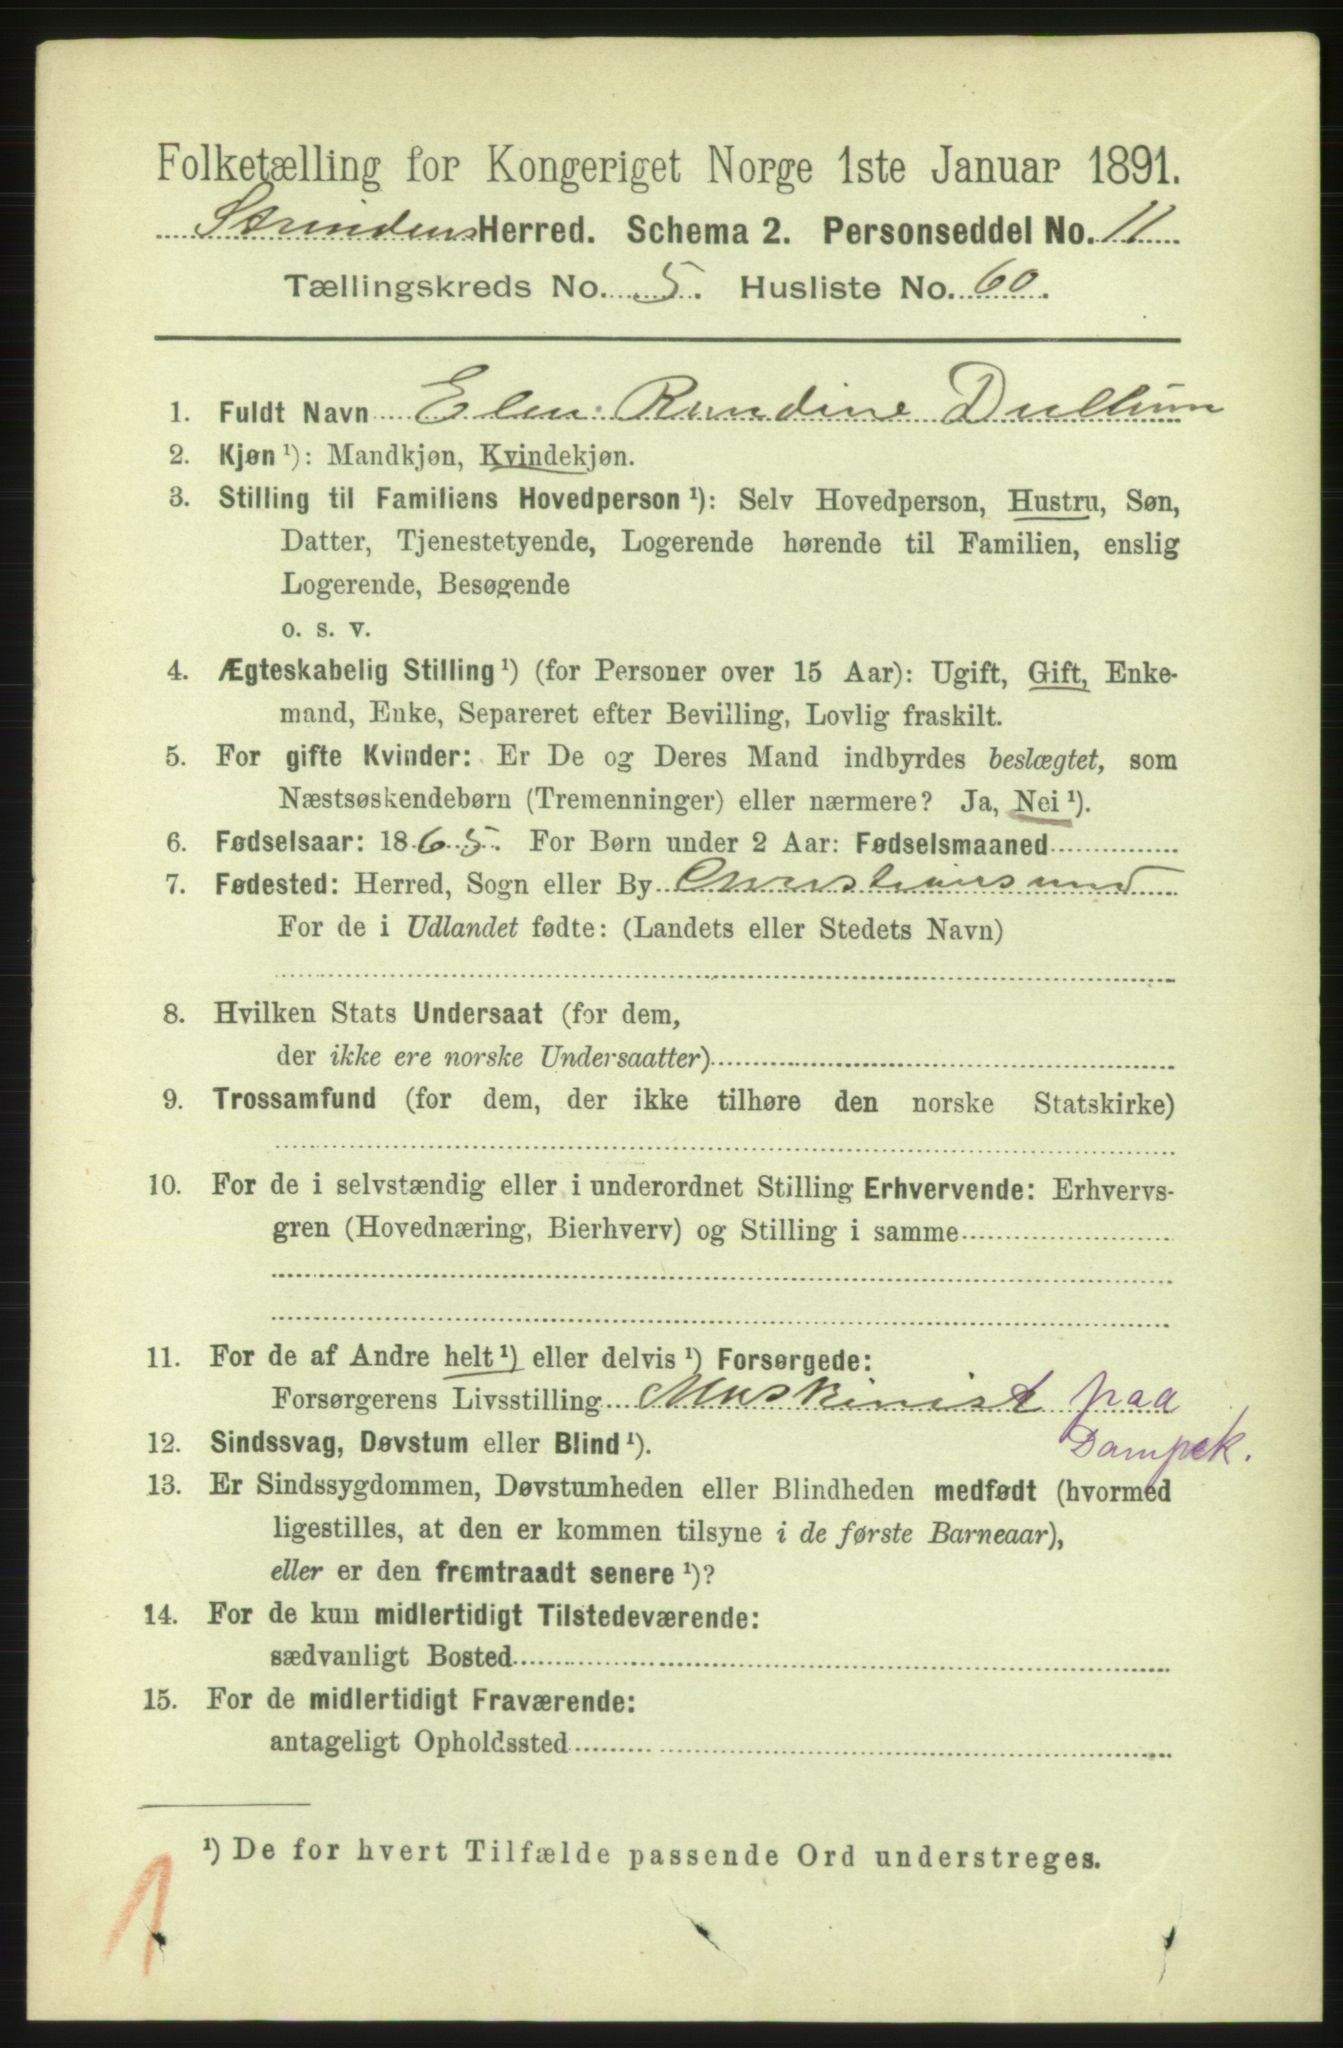 Folketælling for Kongeriget Norge 1ste Januar 1891.
Strindens Herred. Schema 2. Personseddel No. 11
Tællingskreds No. 5. Husliste No. 60.
1. Fuldt Navn Elen Randine Dullum
2. Kjøn ¹): Mandkjøn, Kvindekjøn.
3. Stilling til Familiens Hovedperson ¹): Selv Hovedperson, Hustru, Søn,
Datter, Tjenestetyende, Logerende hørende til Familien, enslig
Logerende, Besøgende
o. s. v.
4. Ægteskabelig Stilling ¹) (for Personer over 15 Aar): Ugift, Gift, Enke-
mand, Enke, Separeret efter Bevilling, Lovlig fraskilt.
5. For gifte Kvinder: Er De og Deres Mand indbyrdes beslægtet, som
Næstsøskendebørn (Tremenninger) eller nærmere? Ja, Nei ¹).
6. Fødselsaar: 1865. For Børn under 2 Aar: Fødselsmaaned
7. Fødested: Herred, Sogn eller By Christiansund
For de i Udlandet fødte: (Landets eller Stedets Navn)
8. Hvilken Stats Undersaat (for dem,
der ikke ere norske Undersaatter)
9. Trossamfund (for dem, der ikke tilhøre den norske Statskirke)
10. For de i selvstændig eller i underordnet Stilling Erhvervende: Erhvervs-
gren (Hovednæring, Bierhverv) og Stilling i samme
11. For de af Andre helt ¹) eller delvis ¹) Forsørgede:
Forsørgerens Livsstilling Maskinist paa
Dampsk.
12. Sindssvag, Døvstum eller Blind ¹).
13. Er Sindssygdommen, Døvstumheden eller Blindheden medfødt (hvormed
ligestilles, at den er kommen tilsyne i de første Barneaar),
eller er den fremtraadt senere ¹)?
14. For de kun midlertidigt Tilstedeværende:
sædvanligt Bosted
15. For de midlertidigt Fraværende:
antageligt Opholdssted
¹) De for hvert Tilfælde passende Ord understreges.
1